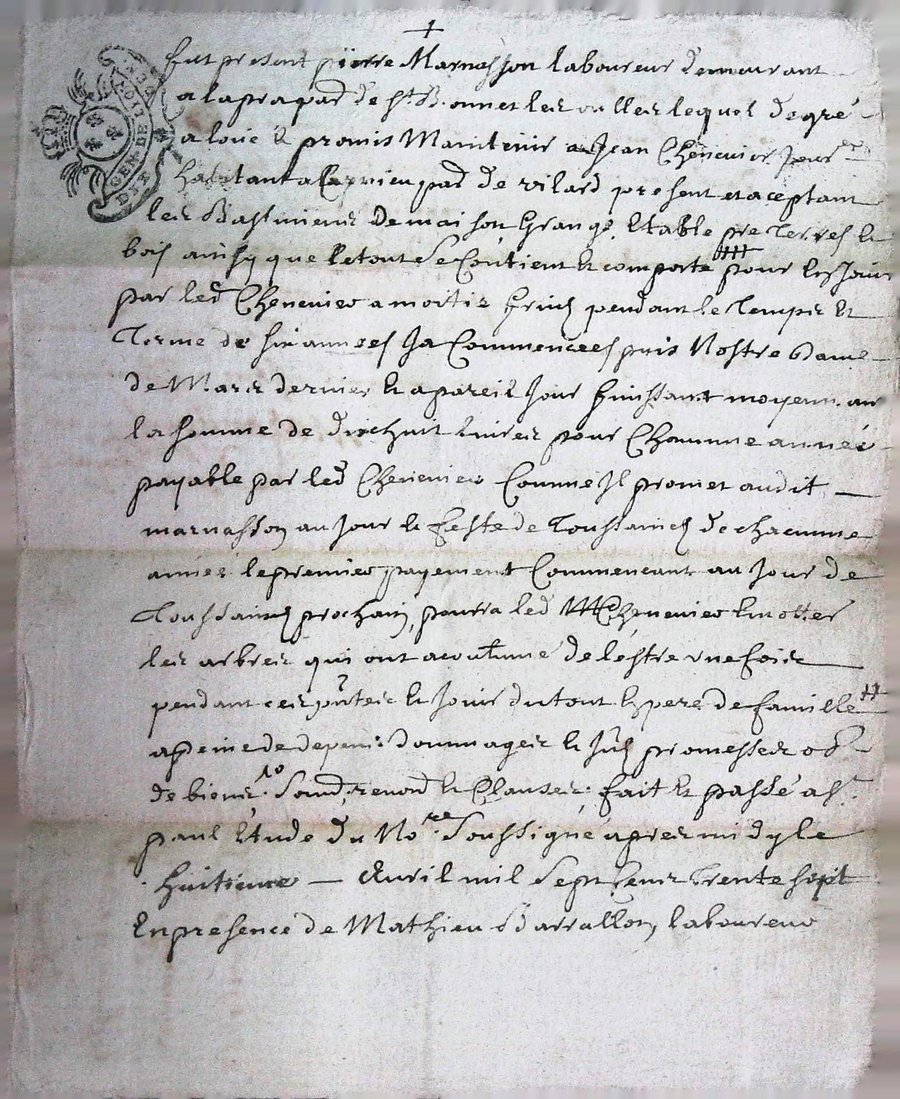 GEN. DE LION
DEN
DIE
fut present pierre Marnasson laboureur demeurant
a la pra par de St Bonnet les oulles lequel de gré
a loué & promis Maintenir a Jean Chenevier
habitant a par de vilard present et aceptant
les Bastimens de maison Grange Etable pre Terres &
bois ainsy que le tout se Contient & comporte pour les Jouir
par led Chenevier a moitié fruis pendant le Temps Et
Terme de six annees Ja Commencees puis Nostre dame
de Mars dernier & a pareil Jour finissant moyennant
la somme de dixhuit livres pour Chacunne année
payable par led Chenevier Comme Jl promet audit
marnasson au Jour & feste de Toussaincs de chacunne
annee le premier payement Commencant au Jour de
Toussaincs prochain, pourra led Chenevier Emotter
les arbres qui ont acoutumé de lestre une fois
pendant ces & Jouir du tout En pere de famille
a peine de depens dommages & promesses ob
de biens renond & Clauses fait & passé a St
paul Étude du Nore Soussigné apres midy le
huitieme Avril mil sept cens trente sept
En presence de Mathieu Barrallon, laboureur